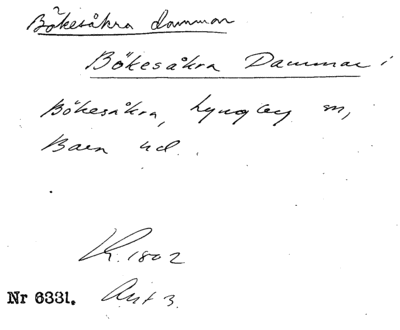 Bökesåkra dammar
Bökesåkra Dammar i
Bökesåkra, Lyngby sn,
Bara hd.
K. 1802
Akt 3.
Nr 6331.